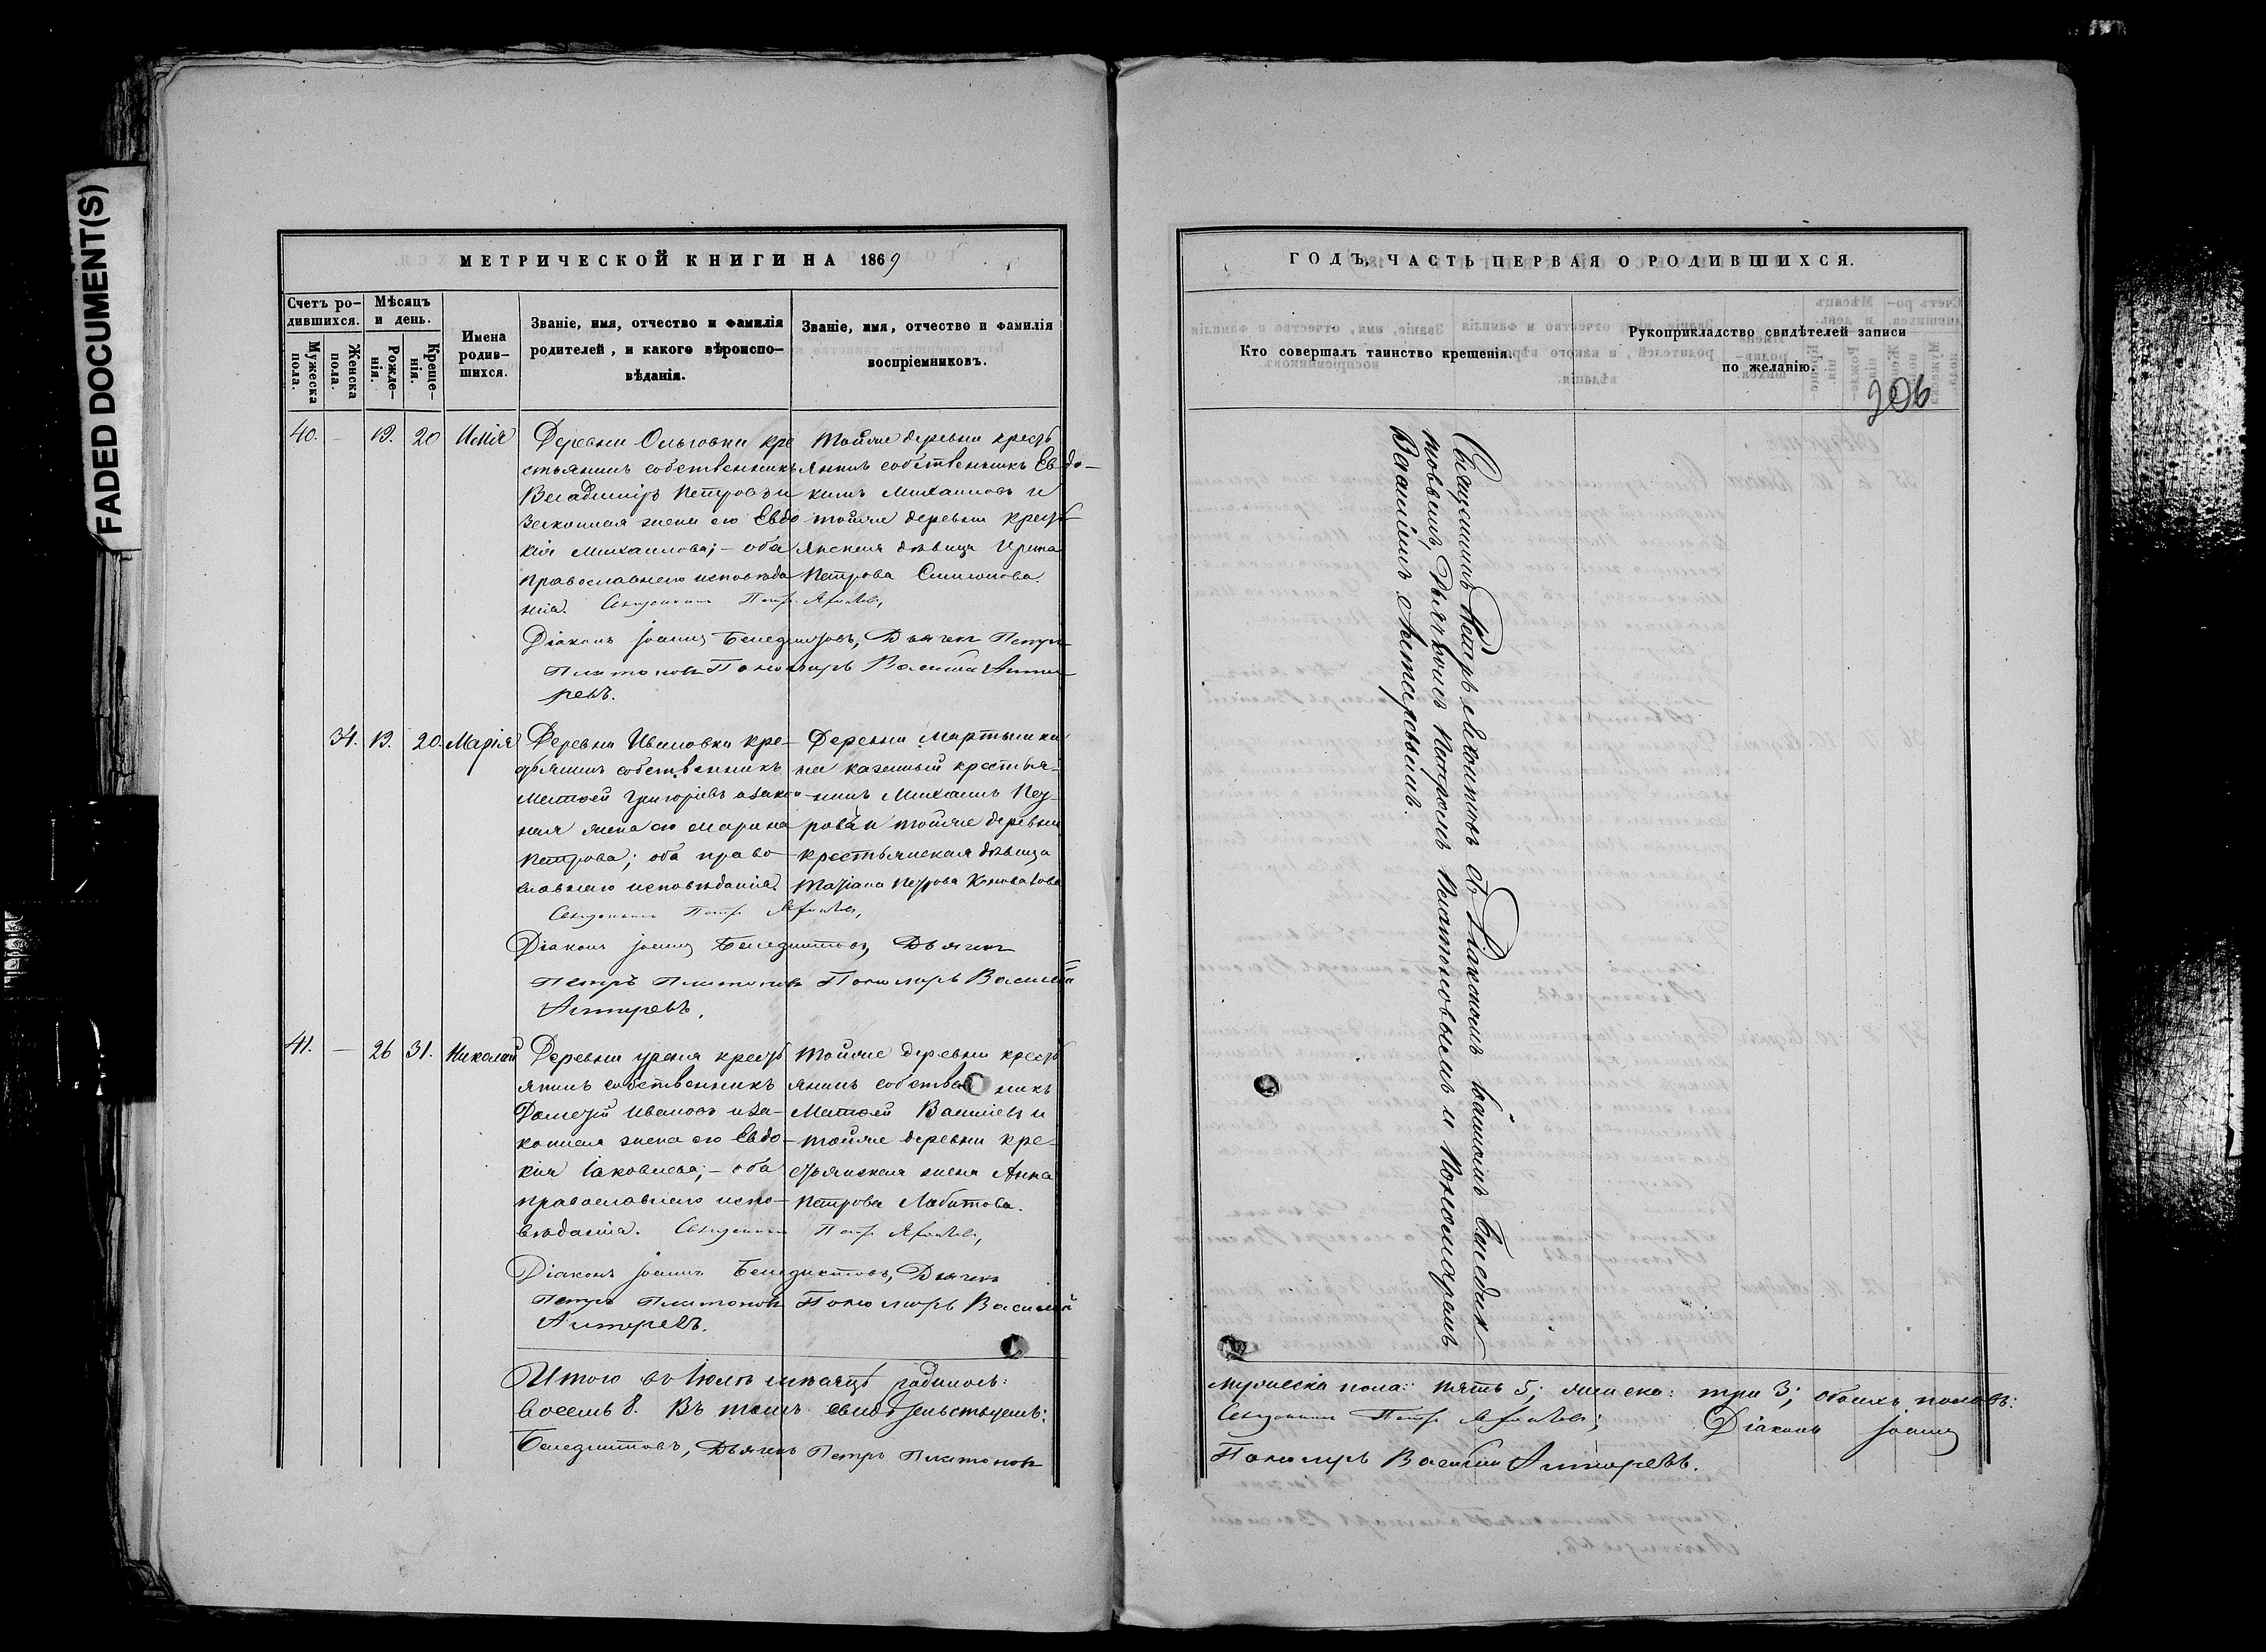 FADED DOCUMENT(S)
МЕТРИЧЕСКОЙ КНИГИ НА 1869
Счетъ родившихся.
Мужеска пола.
Женска пола.
Мѣсяцъ и день.
Рожденія.
Крещенія.
Имена родившихся.
Званіе, имя, отчество и фамилія родителей, и какого вѣроисповѣданія.
Званіе, имя, отчество и фамилія воспріемниковъ.
40. — 19. 20 Илія
Деревни Ольговки кре
стьянинъ собственникъ
Владиміръ Петровъ и
законная жена его Евдо
кія Михаилова; — оба
православнаго исповѣда
нія.
Тойже деревни кресть
янинъ собственникъ Евдо—
кимъ Михаиловъ и
тойже деревни кресть
янская дѣвица Ирина
Петрова
Священникъ Петръ
Діаконъ Іоаннъ Бенедиктовъ, Дьячекъ Петръ
Платоновъ Пономарь Василій
34. 19. 20. Марія
Деревни Ивановки кре—
стьянинъ собственникъ
Матѳей Григорьевъ и закон
ная жена его Марина
Петрова; оба право—
славнаго исповѣданія.
Деревни
казенный крестья—
нинъ Михаилъ Пет—
ровъ и тойже деревни
крестьянская дѣвица
Татіана Петрова Коновалова
Священникъ Петръ
Діаконъ Іоаннъ Бенедиктовъ, Дьячекъ
Петръ Платоновъ Пономарь Василій
41. — 26 31. Николай
Деревни кресть
янинъ собственникъ
Дометій Ивановъ и за—
конная жена его Евдо—
кія Іаковлева; — оба
православнаго испо—
вѣданія.
Тойже деревни кресть
янинъ собственникъ
Матѳей Василіевъ и
тойже деревни кре—
стьянская жена Анна
Петрова
Священникъ Петръ
Діаконъ Іоаннъ Бенедиктовъ, Дьячекъ
Петръ Платоновъ Пономарь Василій
Итого въ Іюлѣ мѣсяцѣ родилось:
восемь 8. Въ томъ свидѣтельствуемъ:
Бенедиктовъ, Дьячекъ Петръ Платоновъ
ГОДЪ, ЧАСТЬ ПЕРВАЯ О РОДИВШИХСЯ.
Кто совершалъ таинство крещенія.
Рукоприкладство свидѣтелей записи по желанію.
206
Священникъ Петръ съ Діакономъ Іоанномъ Бенедик—
товымъ, Дьячкомъ Петромъ Платоновымъ и Пономаремъ
Василіемъ
мужеска пола: пять 5; женска: три 3; обоихъ половъ:
Священникъ Петръ Діаконъ Іоаннъ
Пономарь Василій